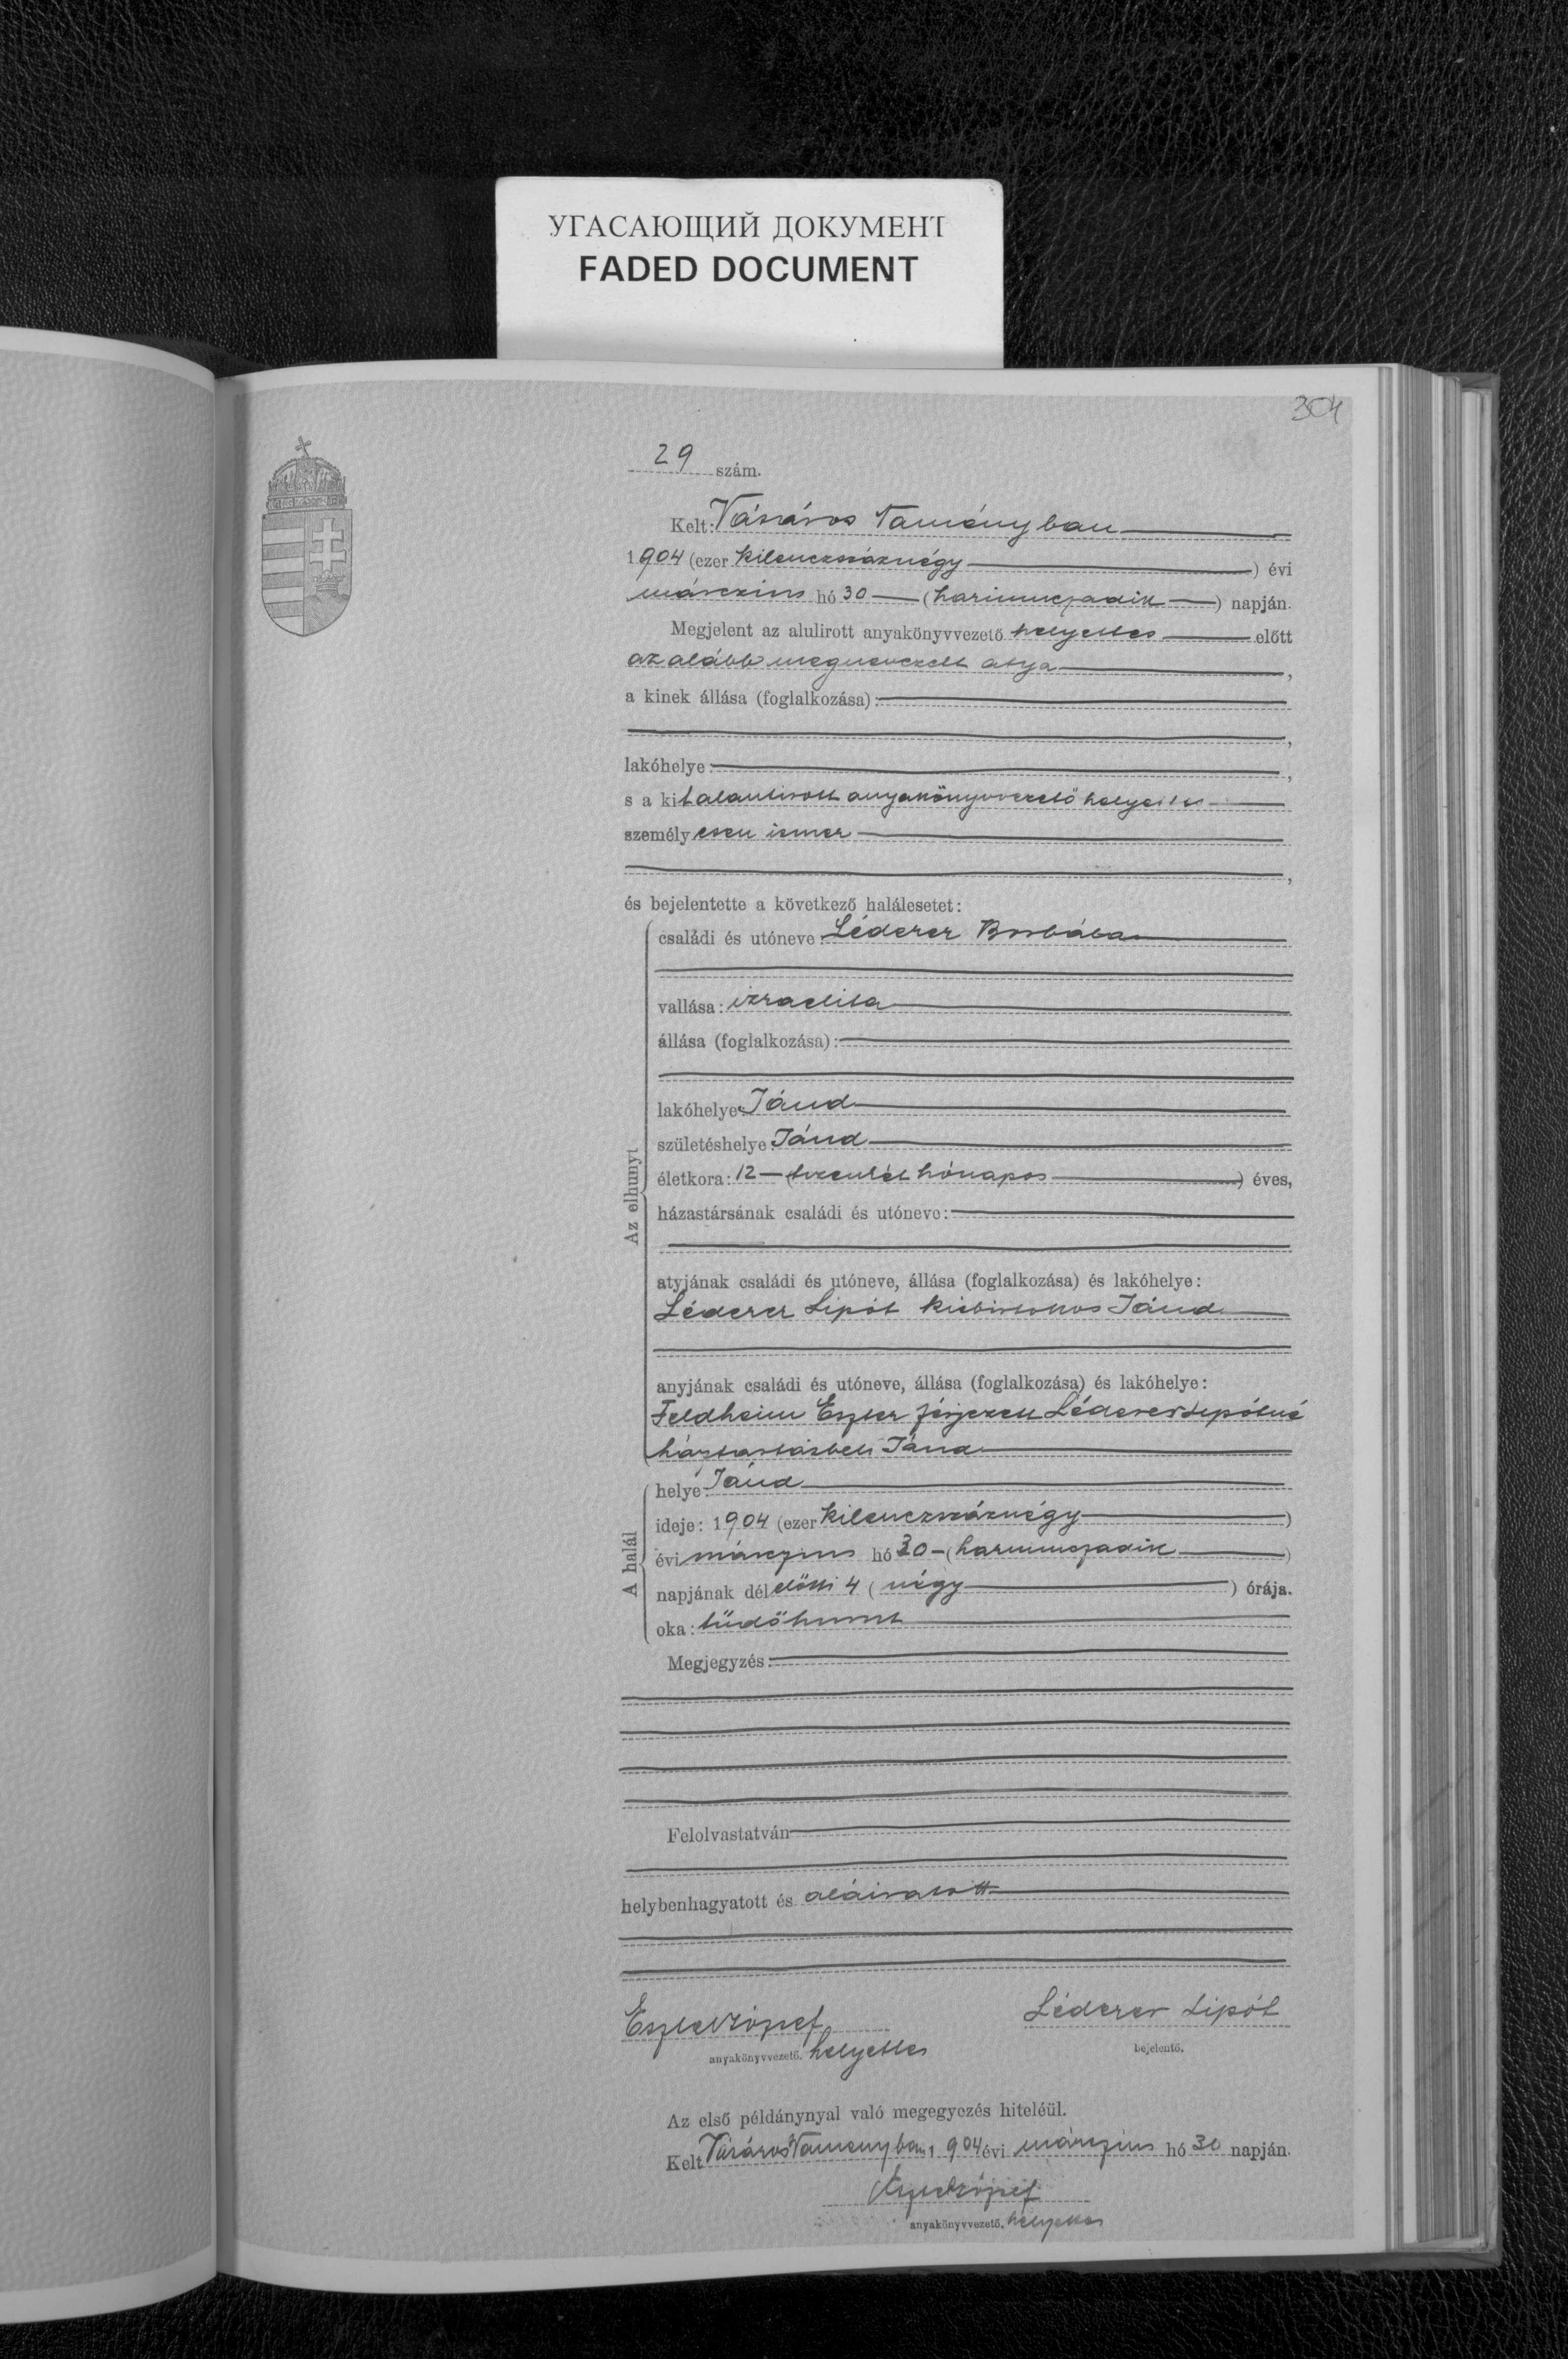 УГАСАЮЩИЙ ДОКУМЕНТ
FADED DOCUMENT
304
29 szám.
Kelt: Vásáros Naményban
1904 (ezer kilenczszáznégy ) évi
márczius hó 30 (harminczadik ) napján.
Megjelent az alulirott anyakönyvvezető helyettes előtt
az alább megnevezett atya ,
a kinek állása (foglalkozása):
,
lakóhelye: ,
s a kit alantirott anyakönyvvezető helyettes
személyesen ismer
,
és bejelentette a következő halálesetet:
Az elhunyt
családi és utóneve: Léderer Borbála
vallása: izraelita
állása (foglalkozása):
lakóhelye: Jánd
születéshelye: Jánd
életkora: 12 (tizenkét hónapos ) éves,
házastársának családi és utóneve:
atyjának családi és utóneve, állása (foglalkozása) és lakóhelye:
Léderer Lipót kisbirtokos Jánd
anyjának családi és utóneve, állása (foglalkozása) és lakóhelye:
Feldheim Eszter férjezett Léderer Lipótné
háztartásbeli Jánd
A halál
helye: Jánd
ideje: 1904 (ezer kilenczszáznégy )
évi márczius hó 30 (harminczadik )
napjának délelőtti 4 (négy ) órája.
oka: tüdőhurut
Megjegyzés:
Felolvastatván
helybenhagyatott és aláiratott
József Léderer Lipót
anyakönyvvezető. helyettes bejelentő.
Az első példánynyal való megegyezés hiteléül.
Kelt Vásáros Naményban 1904 évi márczius hó 30 napján.
József
anyakönyvvezető. helyettes